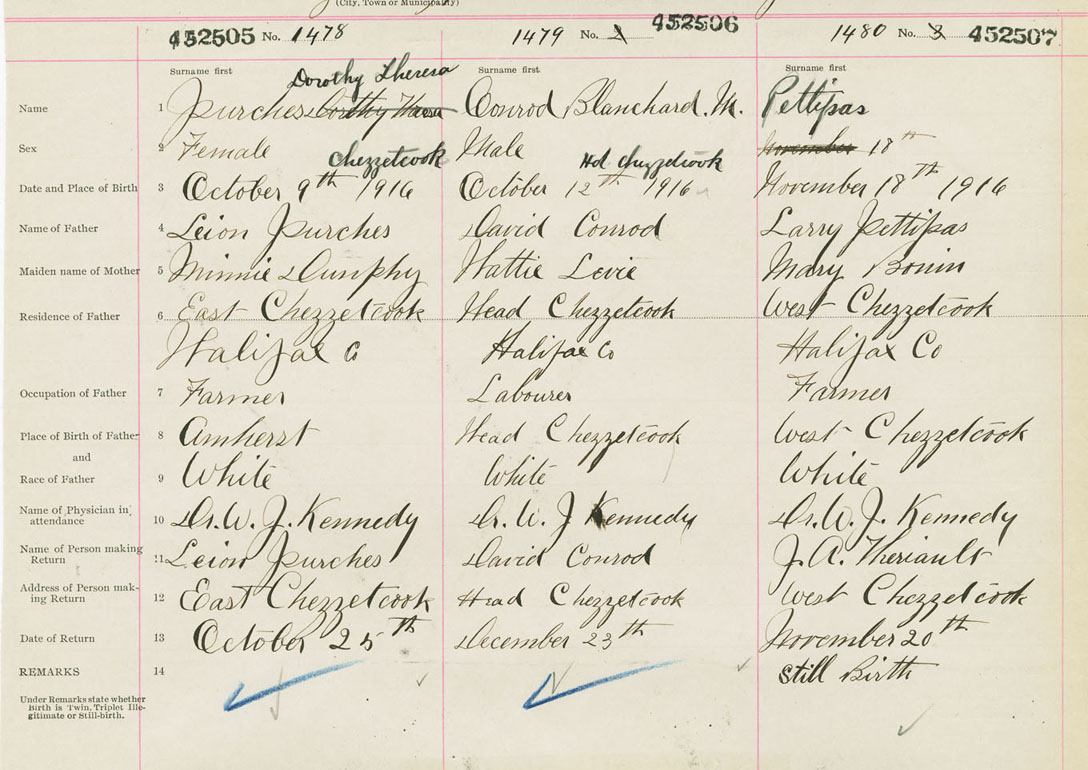 (City, Town or Municipality)
452505 No. 1478
1479 No. 2 452506
1480 No. 3 452507
Surname first Dorothy Theresa
Surname first
Surname first
Name 1 Purches Dorothy Theresa
Conrod Blanchard. M.
Pettipas
Sex 2 Female
Male
November 18th
Chezzetcook
Hd Chezzetcook
Date and Place of Birth 3 October 9th 1916
October 12th 1916
November 18th 1916
Name of Father 4 Leion Purches
David Conrod
Larry Pettipas
Maiden name of Mother 5 Minnie Dunphy
Hattie Levie
Mary Bonin
Residence of Father 6 East Chezzetcook
Head Chezzetcook
West Chezzetcook
Halifax Co
Halifax Co
Halifax Co
Occupation of Father 7 Farmer
Labourer
Farmer
Place of Birth of Father 8 Amherst
Head Chezzetcook
West Chezzetcook
and
Race of Father 9 White
White
White
Name of Physician in
attendance 10 Dr. W. J. Kennedy
Dr. W. J Kennedy
Dr. W. J. Kennedy
Name of Person making
Return 11 Leion Purches
David Conrod
J. A. Theriault
Address of Person mak-
ing Return 12 East Chezzetcook
Head Chezzetcook
West Chezzetcook
Date of Return 13 October 25th
December 23th
November 20th
REMARKS 14
Still Birth
Under Remarks state whether
Birth is Twin, Triplet Ille-
gitimate or Still-birth.